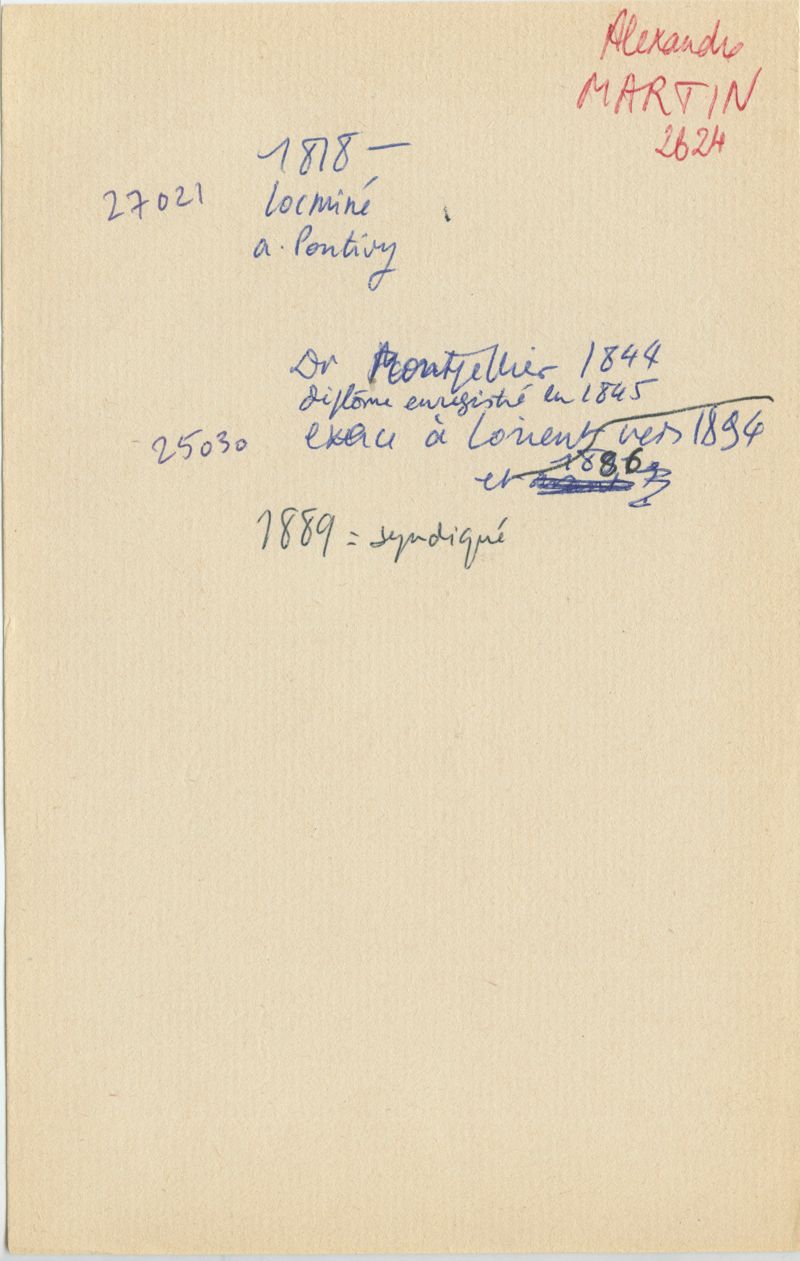 Alexandre
MARTIN
2624
1818 —
27021 Locminé
a. Pontivy
Dr Montpellier 1844
diplôme enregistré en 1845
25030 exerce à Lorient vers 1894
1886
et
1889 = syndiqué